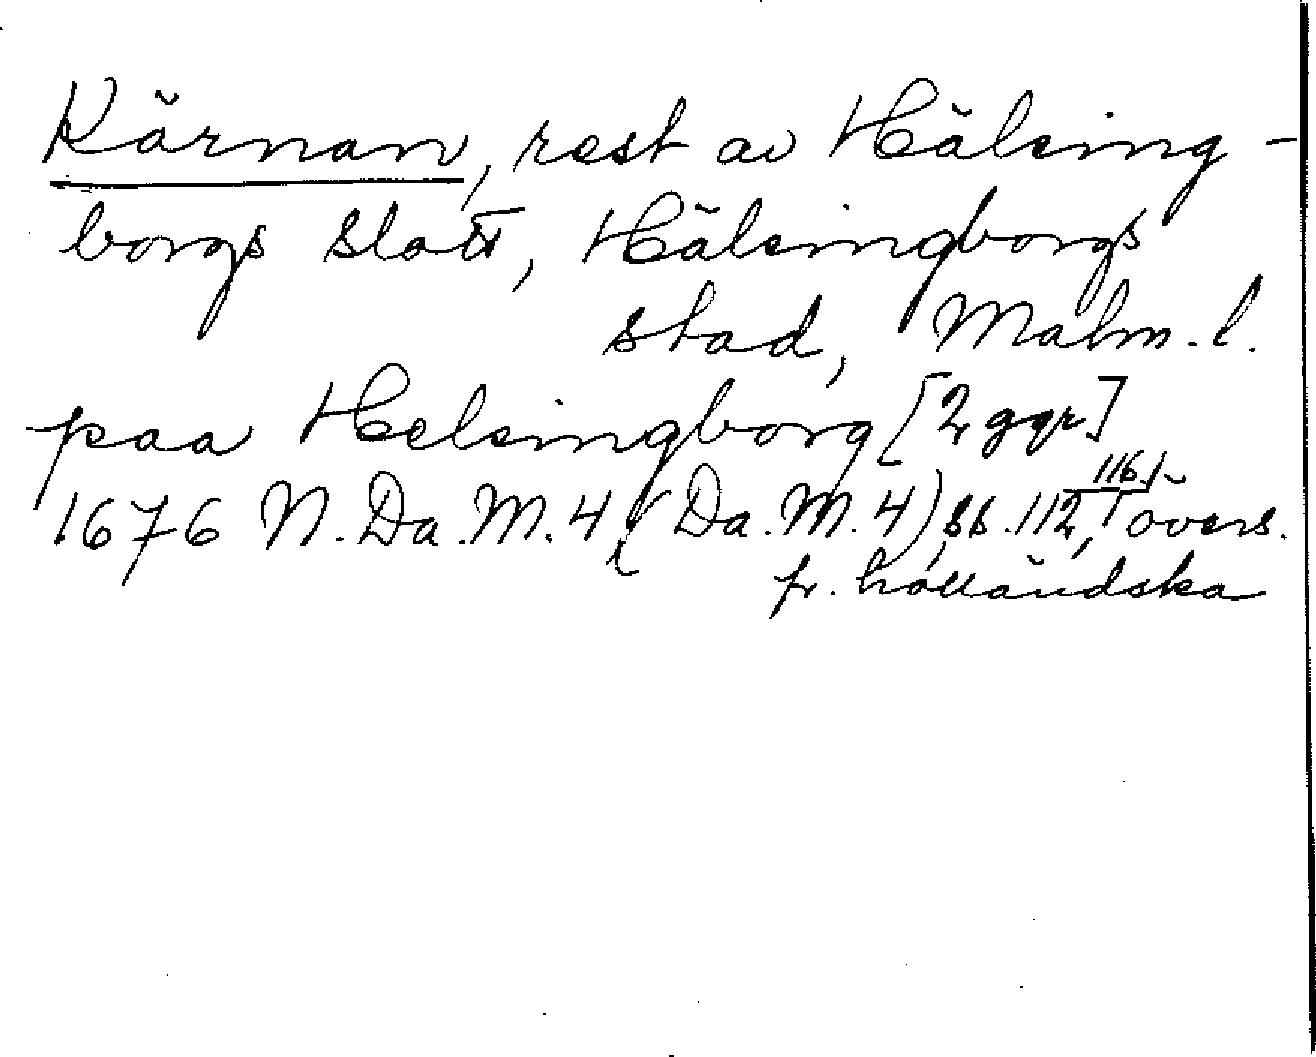 Kärnan, rest av Hälsing-
borgs slott, Hälsingborgs
stad, Malm. l.
paa Helsingborg [2 ggr]
1676 N. Da. M. 4 (Da. M. 4), ss. 112, 116, övers.
fr. holländska